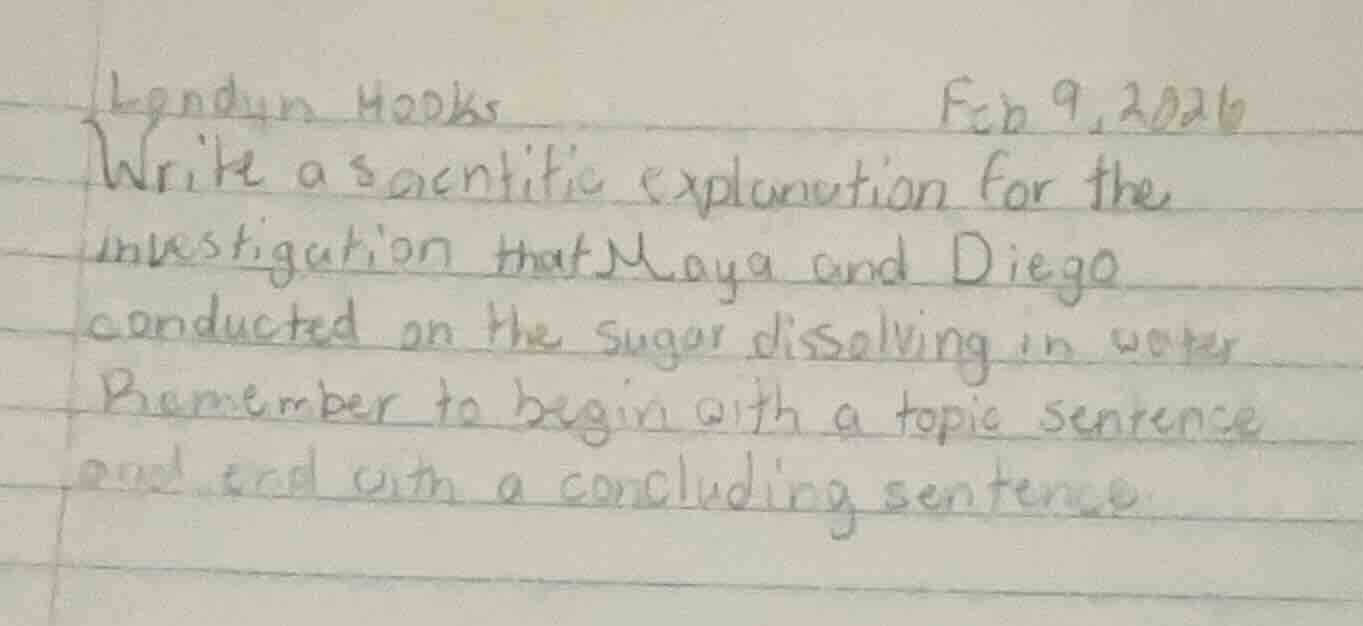 Londyn Hooks Feb 9, 2026
Write a sacntific explanation for the
investigation that Maya and Diego
conducted on the sugar dissolving in water
Remember to begin with a topic sentence
and end with a concluding sentence